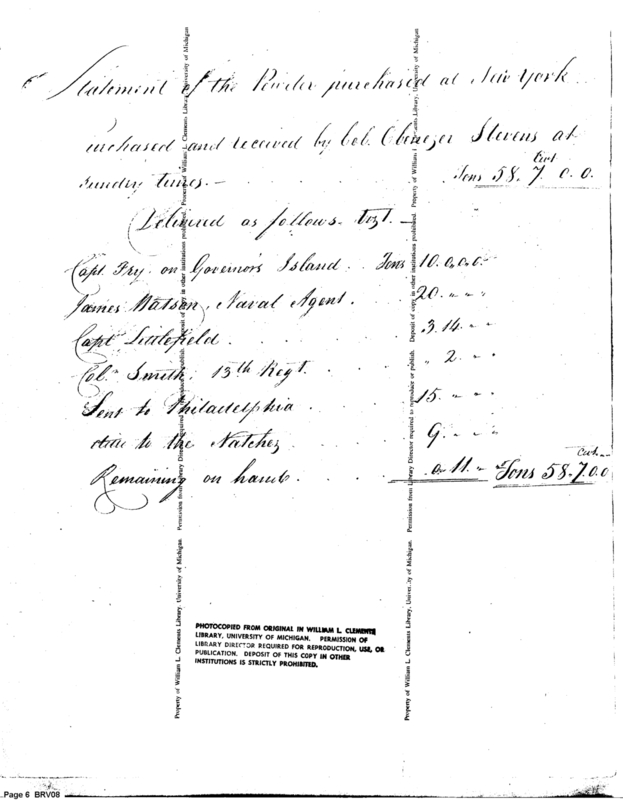 Statement of the Powder purchased at New York
purchased and received by Col. Ebenezer Stevens at
Sundry times. — Tons 58. 7 Cwt 0. 0.
Delivered as follows. Vizt. —
Capt. Fry. on Governor's Island . . Tons 10. 0. 0. 0
James Watson, Naval Agent. . . 20. " " "
Capt Littlefield . . . . . 3. 14. " "
Colo. Smith, 13th Regt. . . . . " 2. " "
Sent to Philadelphia . . . . 15. " " "
to the Natchez . . . . 9. " " "
Remaining on hand . . . . 0. 11. " Tons 58. 7 Cwt. 0. 0
PHOTOCOPIED FROM ORIGINAL IN WILLIAM L. CLEMENTS
LIBRARY, UNIVERSITY OF MICHIGAN. PERMISSION OF
LIBRARY DIRECTOR REQUIRED FOR REPRODUCTION, USE, OR
PUBLICATION. DEPOSIT OF THIS COPY IN OTHER
INSTITUTIONS IS STRICTLY PROHIBITED.
Property of William L. Clements Library, University of Michigan. Permission from Library Director required to reproduce or publish. Deposit of copy in other institutions prohibited. Property of William L. Clements Library, University of Michigan
Property of William L. Clements Library, University of Michigan. Permission from Library Director required to reproduce or publish. Deposit of copy in other institutions prohibited. Property of William L. Clements Library, University of Michigan
Page 6 BRV08